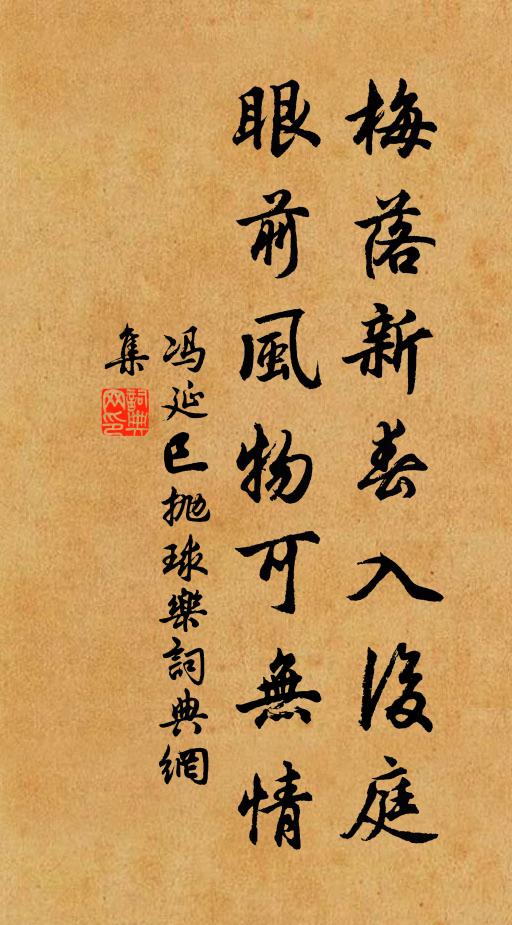 梅落新春入後庭
眼前風物可無情
冯延巳抛球樂詞典網
集
詞典
网印